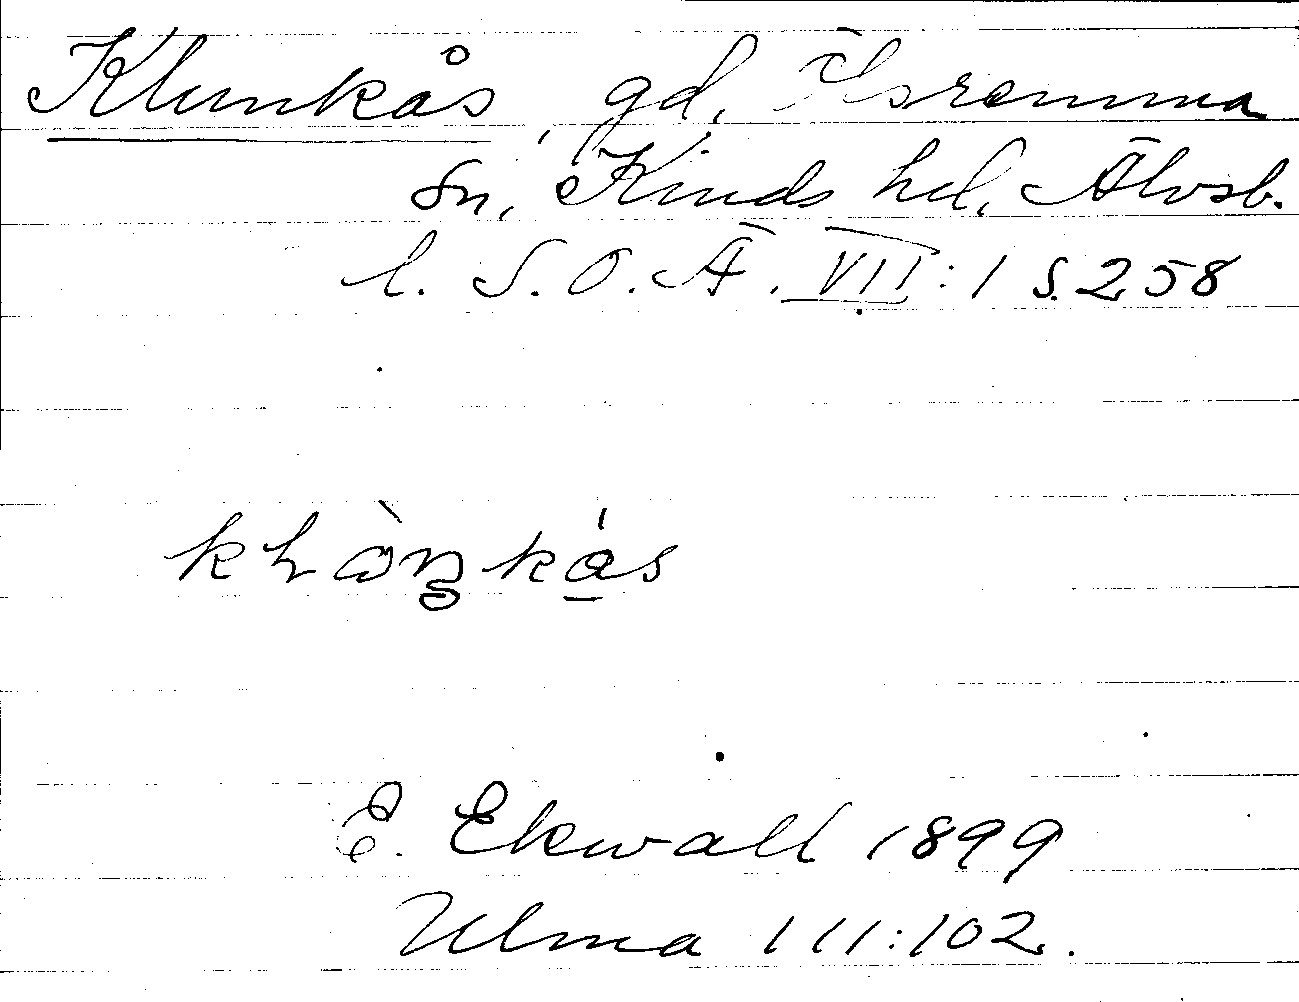 Klunkås, gd, Älsremma
sn, Kinds hd, Älvsb.
l. S.O.Ä. VII:1 s. 258
klὰŋkås
E. Ekwall 1899
Ulma 111:102.